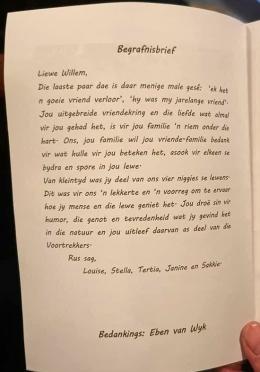 Begrafnisbrief
Liewe Willem,
Die laaste paar dae is daar menige male gesê: 'ek het
'n goeie vriend verloor', 'hy was my jarelange vriend'.
Jou uitgebreide vriendekring en die liefde wat almal
vir jou gehad het, is vir jou familie 'n riem onder die
hart. Ons, jou familie wil jou vriende-familie bedank
vir wat hulle vir jou beteken het, asook vir elkeen se
bydra en spore in jou lewe.
Van kleintyd was jy deel van ons vier niggies se lewens.
Dit was vir ons 'n lekkerte en 'n voorreg om te ervaar
hoe jy mense en die lewe geniet het. Jou droë sin vir
humor, die genot en tevredenheid wat jy gevind het
in die natuur en jou uitleef daarvan as deel van die
Voortrekkers.
Rus sag,
Louise, Stella, Tertia, Janine en Sakkie.
Bedankings: Eben van Wyk